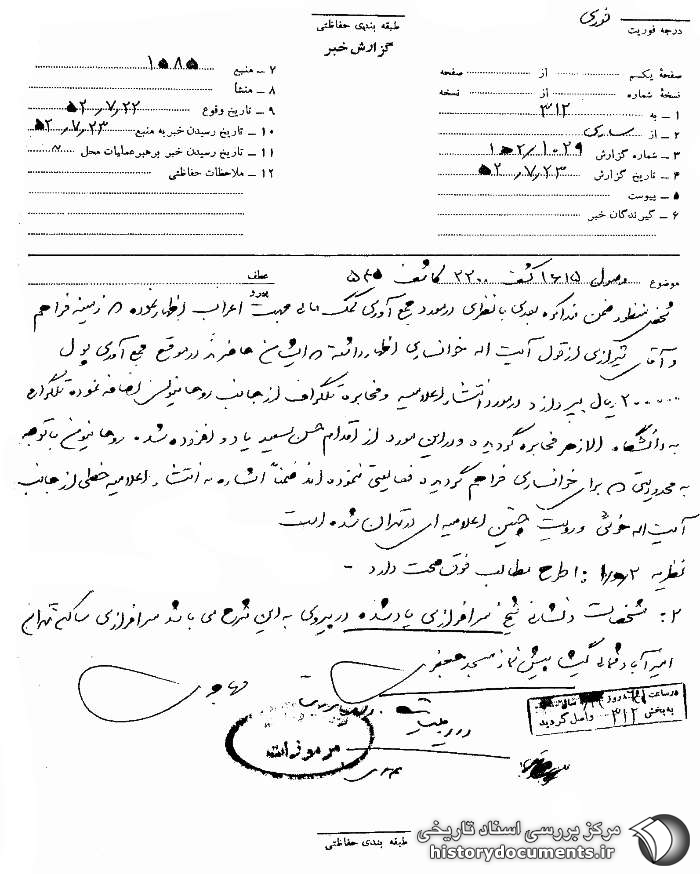 درجه فوریت فوری
طبقه بندی حفاظتی
گزارش خبر
صفحهٔ یکم از صفحه
نسخهٔ شماره از نسخه
۱ ـ به ۳۱۲
۲ ـ از ساری
۳ ـ شماره گزارش ۱۰۲۹/ ۱ه۲
۴ ـ تاریخ گزارش ۵۲/۷/۲۳
۵ ـ پیوست
۶ ـ گیرندگان خبر
۷ ـ منبع ۱۵۸۵
۸ ـ منشا
۹ ـ تاریخ وقوع ۵۲/۷/۲۲
۱۰ ـ تاریخ رسیدن خبر به منبع ۵۲/۷/۲۳
۱۱ ـ تاریخ رسیدن خبر برهبر عملیات محل
۱۲ ـ ملاحظات حفاظتی
موضوع وصول ۱۶۱۵ کشف ۲۲۰۰ کاشف ۵۴۵ عطف
پیرو
منظور ضمن مذاکره بعدی با نظری درمورد جمع آوری کمک مالی جهت اعراب اظهار نموده ه زمینه فراهم
و آقای شیرازی از قول آیت اله خوانساری اظهار داشته ه ایشان حاضرند در موقع جمع آوری پول
۲۰۰۰۰۰ ریال بپردازد درمورد انتشار اعلامیه و مخابره تلگراف از جانب روحانیون اضافه نموده تلگراف
به دانشگاه الازهر مخابره گردیده و در این مورد از اقدام حسن سعید یاد و افزوده شده روحانیون با توجه
به محدودیتی ه برای خوانساری فراهم گردیده فعالیتی ننموده اند ضمناً اشاره به انتشار اعلامیه خطی از جانب
آیت اله خوئی و رویت چنین اعلامیه ای در تهران شده است
نظریه ۱ه۲ : ۱ـ طرح مطالب فوق صحت دارد ـ
۲ ـ مشخصات و نشانی شیخ سرافرازی یاد شده در پیروی به این شرح می باشد سرافرازی ساکن تهران
امیرآباد شمالی گیشا پیش نماز مسجد جعفری
رمز وزارت
در ساعت روز
به بخش ۳۱۲ واصل گردید
طبقه بندی حفاظتی
مرکز بررسی اسناد تاریخی
historydocuments.ir